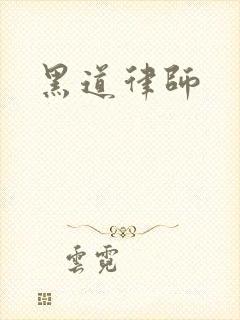 黑道律師
雲霓